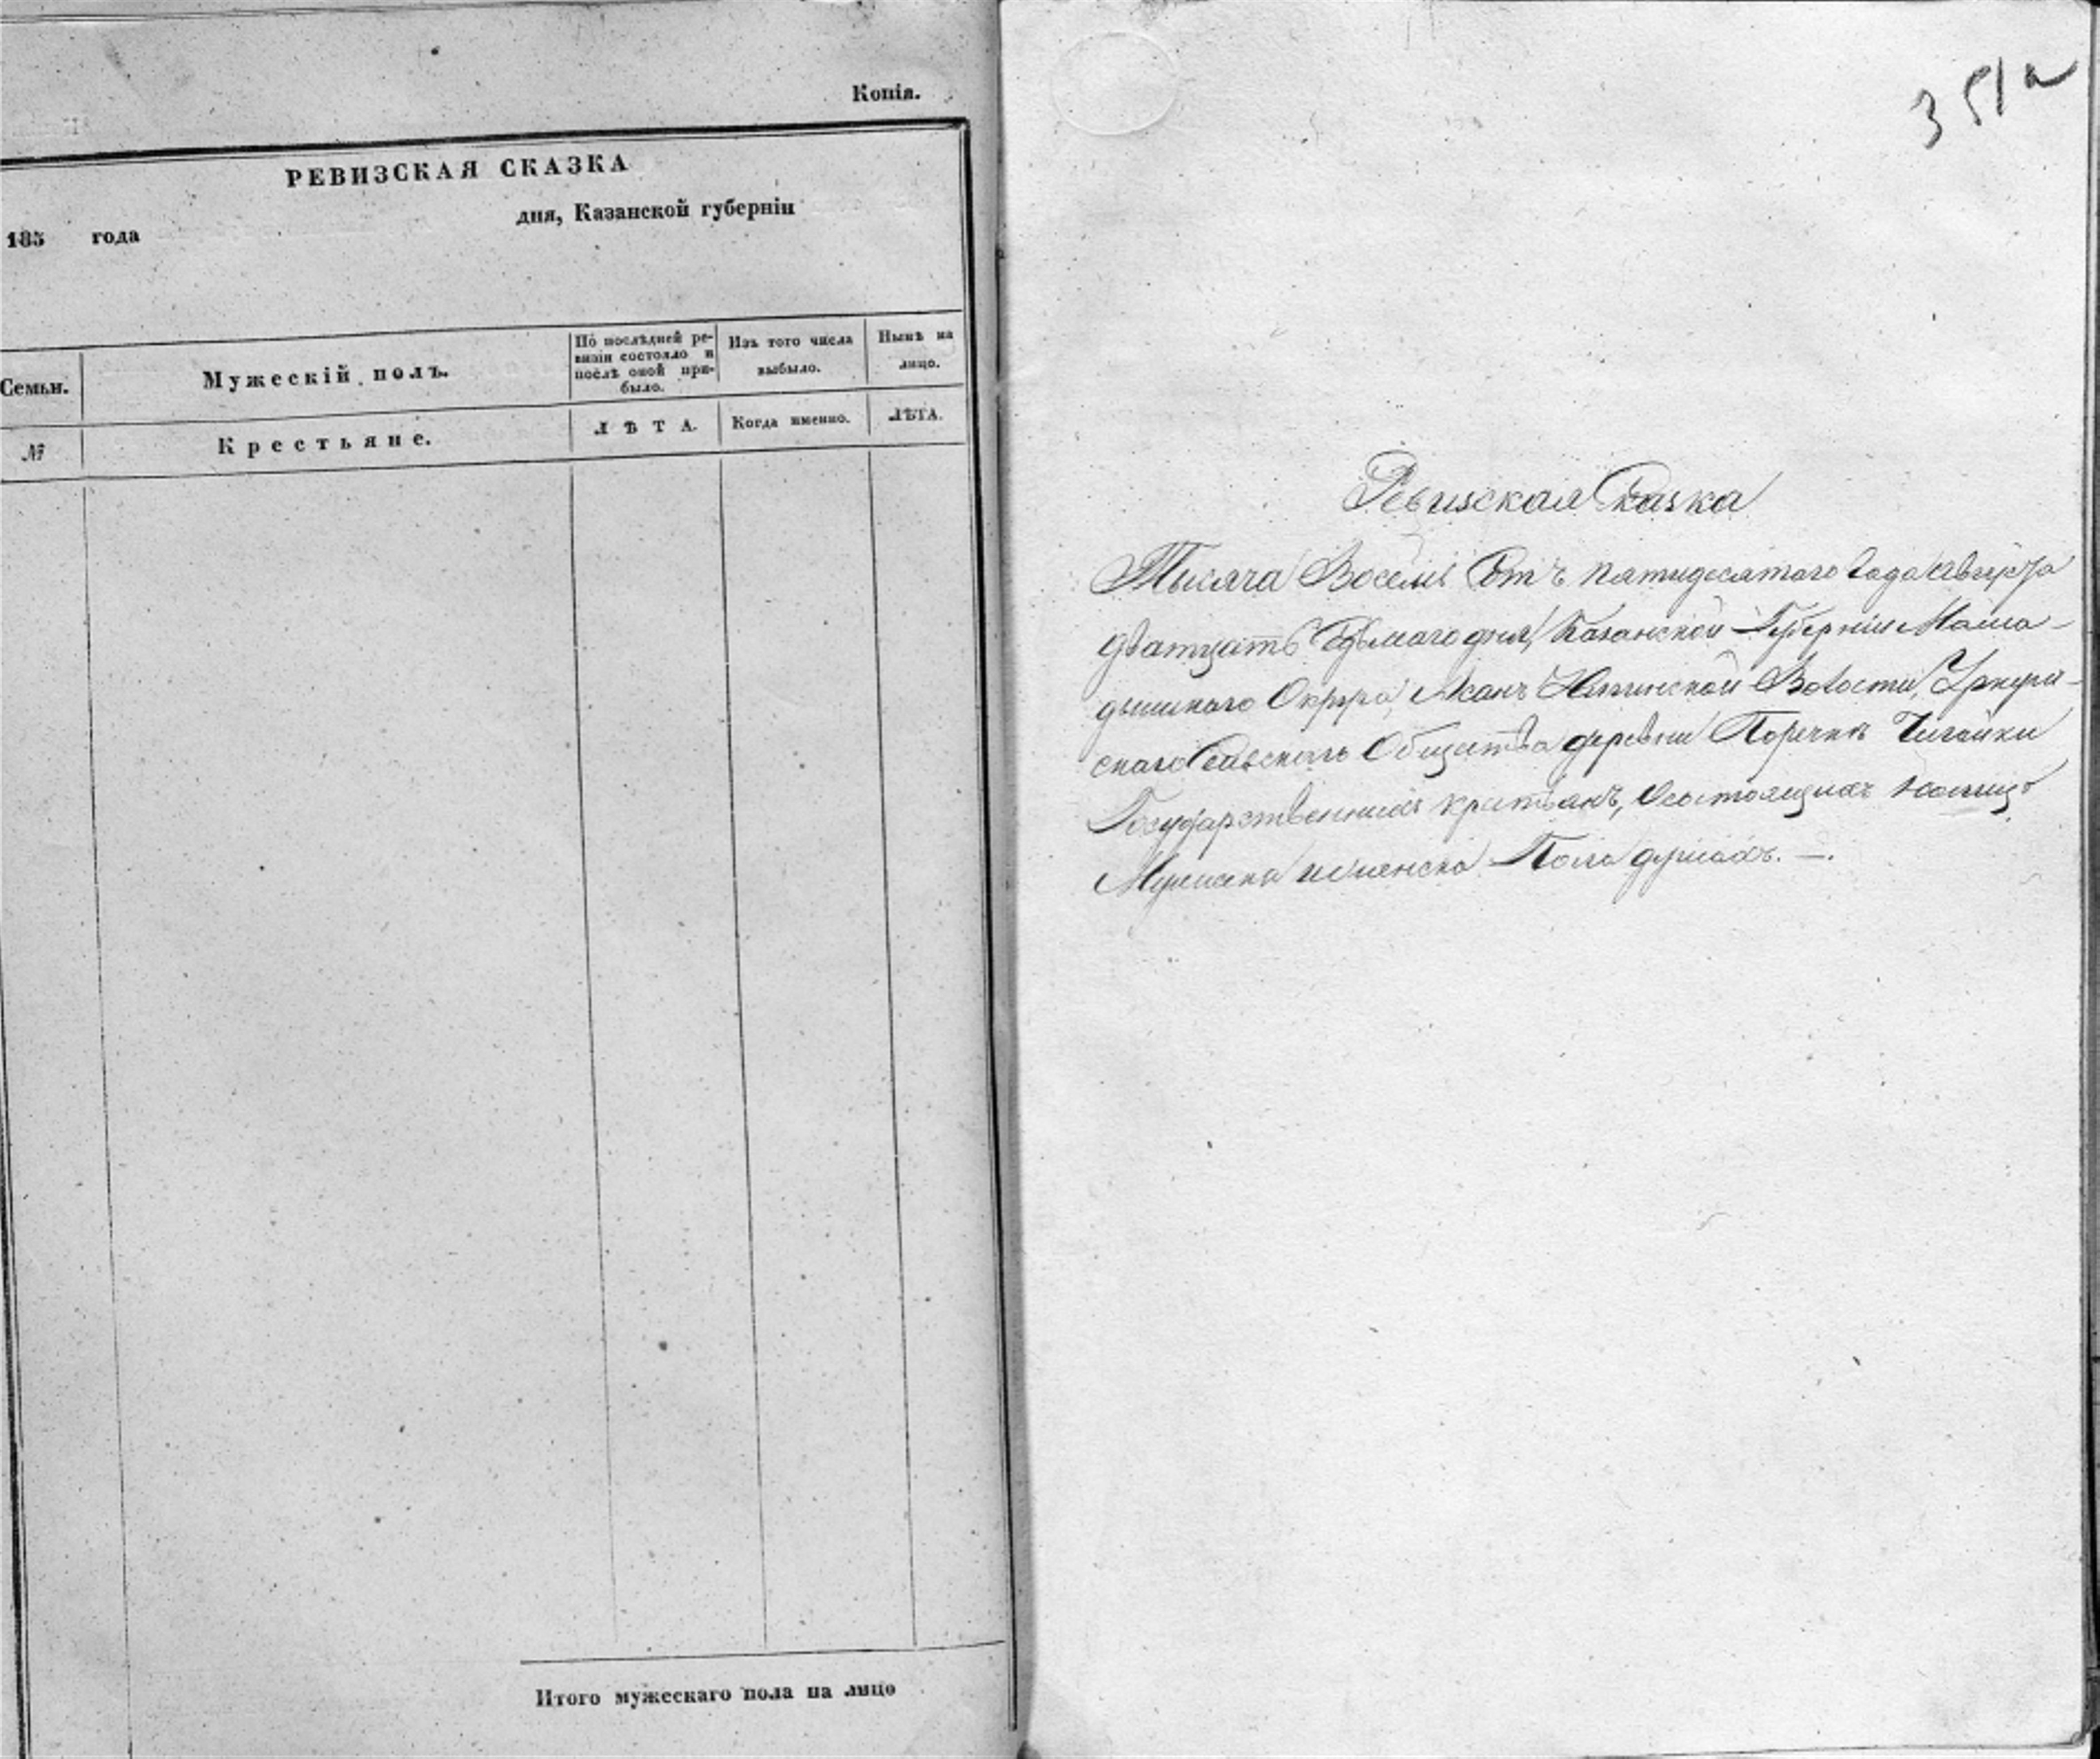 Копія.
РЕВИЗСКАЯ СКАЗКА
185 года дня, Казанской губерніи
Семьи.
Мужескій полъ.
По послѣдней ре-
визіи состояло и
послѣ оной при-
было.
Изъ того числа
выбыло.
Нынѣ на
лицо.
№
Крестьяне.
ЛѢТА.
Когда именно.
ЛѢТА.
Итого мужескаго пола на лицо
351а
Ревизская Сказка
Тысяча Восемь Сотъ пятидесятаго Года Августа
дватцать Седьмаго дня, Казанской Губерніи Мама-
дышнаго Округа, Волости,
скаго Сельскаго Общества деревни Поречки Чигайки
Государственныхъ крестьянъ, Осостоящихъ налицо
Мужеска иженска Пола душахъ. —.